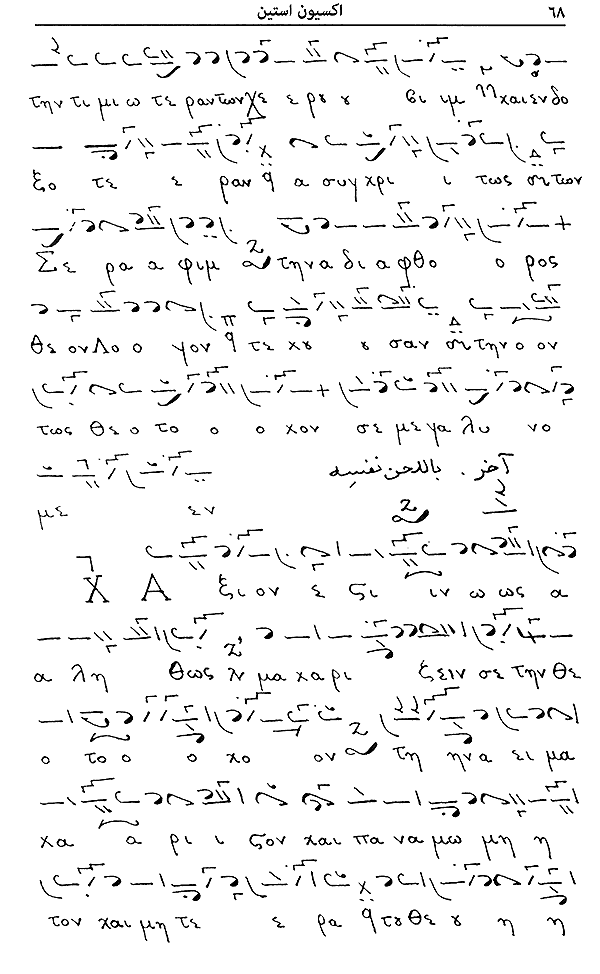 ٦٨ اكسيون استين
την τι μι ω τε ραντωνχε ε ρου υ βι ιμ η χαιενδο
ξο τε ε ραν α συγχρι ι τως των
Σε ρα α φιμ τηνα δι α φθο ο ρος
θε ονλο ο γον τε χου υ σαν την ο ον
τως θε ο το ο ο χον σε με γα λυ νο
με εν
آخر . باللحن نفسه
Χ Α ξι ον ε ςι ιν ω ως α
α λη θως μα χα ρι ξειν σε την θε
ο το ο ο χο ον τη ηνα ει μα
χα α ρι ι ςον χαι πα να μω μη η
τον χαι μη τε ε ρα του θε ου η η